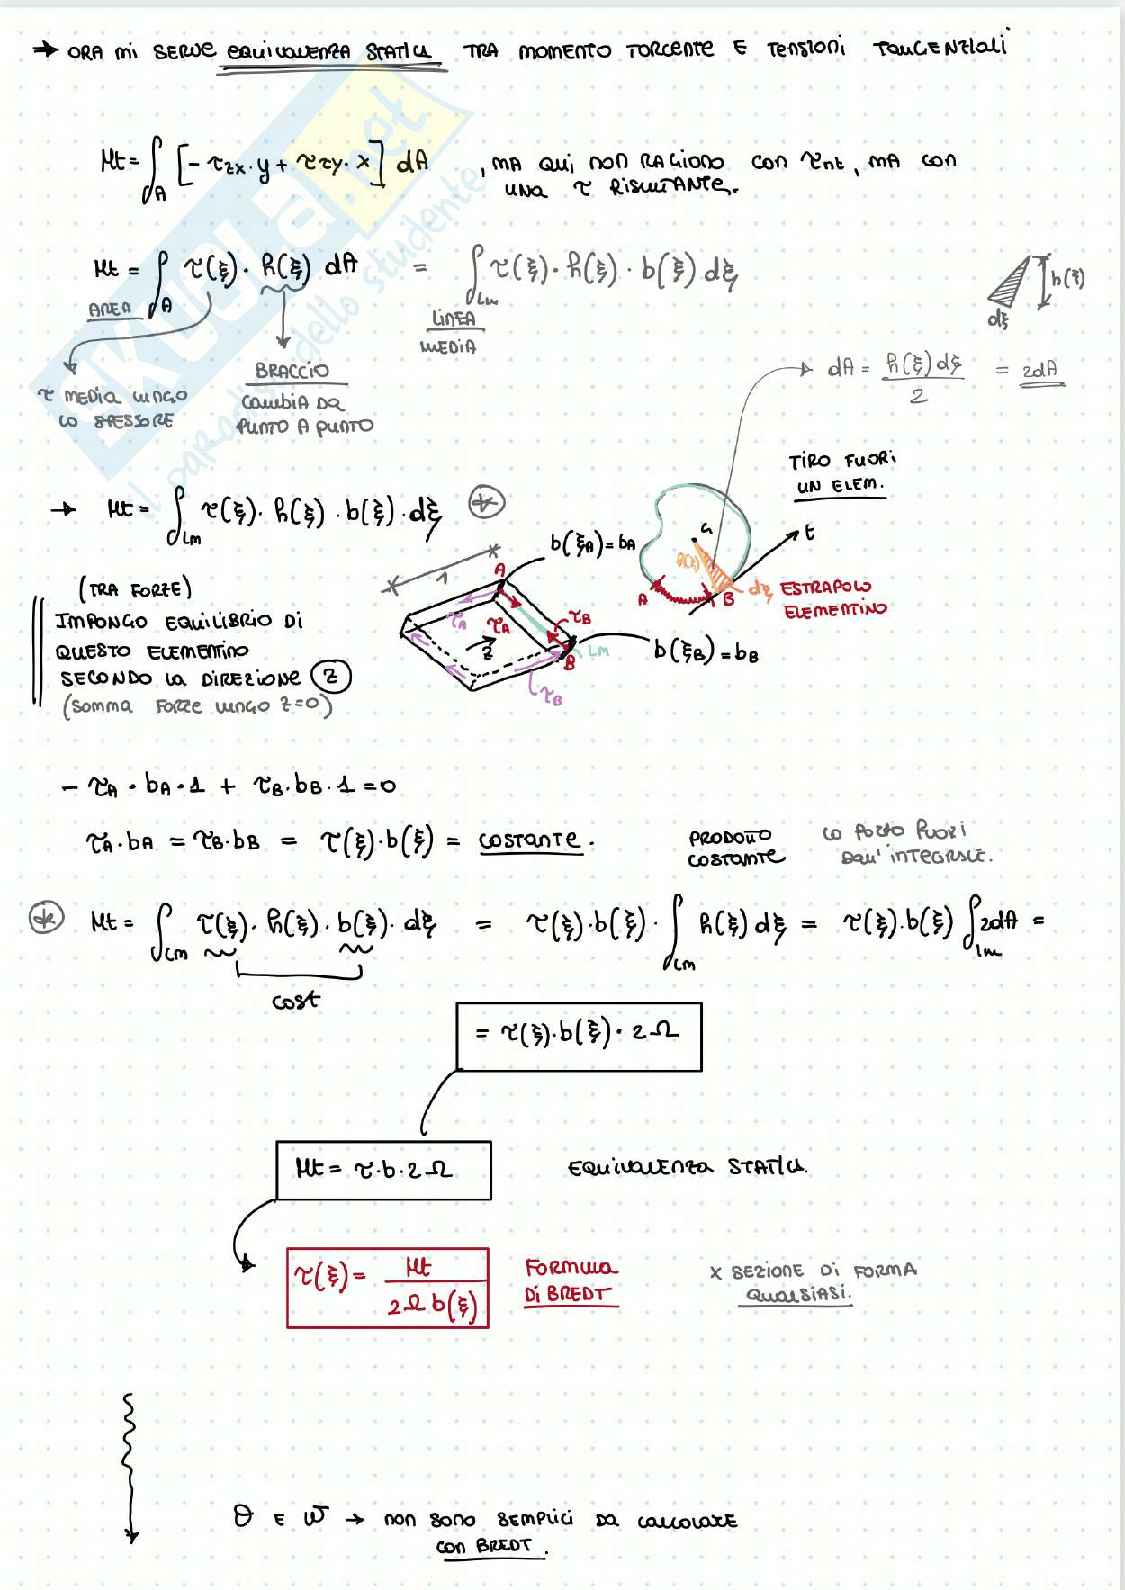 → ORA MI SERVE EQUIVALENZA STATICA TRA MOMENTO TORCENTE E TENSIONI TANGENZIALI
Mt = ∫_A [- τzx · y + τzy · x] dA , MA QUI NON RAGIONO CON τnt, MA CON
UNA τ RISULTANTE.
Mt = ∫_A τ(ξ) · h(ξ) dA = ∫_Lm τ(ξ) · h(ξ) · b(ξ) dξ
AREA
LINEA
MEDIA
h(ξ)
dξ
τ MEDIA LUNGO
LO SPESSORE
BRACCIO
CAMBIA DA
PUNTO A PUNTO
→ dA = h(ξ) dξ / 2 = 2dA
TIRO FUORI
UN ELEM.
→ Mt = ∫_Lm τ(ξ) · h(ξ) · b(ξ) · dξ (*)
b(ξA) = bA
G
t
h(ξ)
dξ
A
B
ESTRAPOLO
ELEMENTINO
1
A
τA
τA
τB
z
LM
B
τB
b(ξB) = bB
(TRA FORZE)
IMPONGO EQUILIBRIO DI
QUESTO ELEMENTINO
SECONDO LA DIREZIONE (z)
(SOMMA FORZE LUNGO z=0)
- τA · bA · 1 + τB · bB · 1 = 0
τA · bA = τB · bB = τ(ξ) · b(ξ) = COSTANTE.
PRODOTTO
COSTANTE
LO PORTO FUORI
DALL'INTEGRALE.
(*) Mt = ∫_Lm τ(ξ) · h(ξ) · b(ξ) · dξ = τ(ξ) · b(ξ) · ∫_Lm h(ξ) dξ = τ(ξ) · b(ξ) ∫_Lm 2dA =
cost
= τ(ξ) · b(ξ) · 2Ω
Mt = τ · b · 2Ω
EQUIVALENZA STATICA
τ(ξ) = Mt / 2Ω b(ξ)
FORMULA
DI BREDT
X SEZIONE DI FORMA
QUALSIASI.
θ E ϖ → NON SONO SEMPLICI DA CALCOLARE
CON BREDT.
skuola.net
il paradiso dello studente